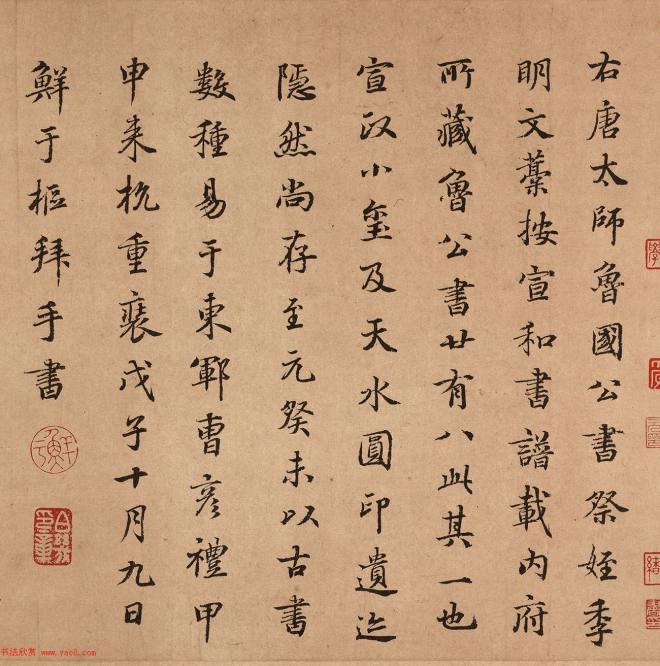 右唐太師魯國公書祭姪季
明文藁按宣和書譜載內府
所藏魯公書廿有八此其一也
宣政小璽及天水圓印遺迹
隱然尚存至元癸未以古書
數種易于東鄆曹彥禮甲
申來杭重裝戊子十月九日
鮮于樞拜手書
书法欣赏 www.yac8.com